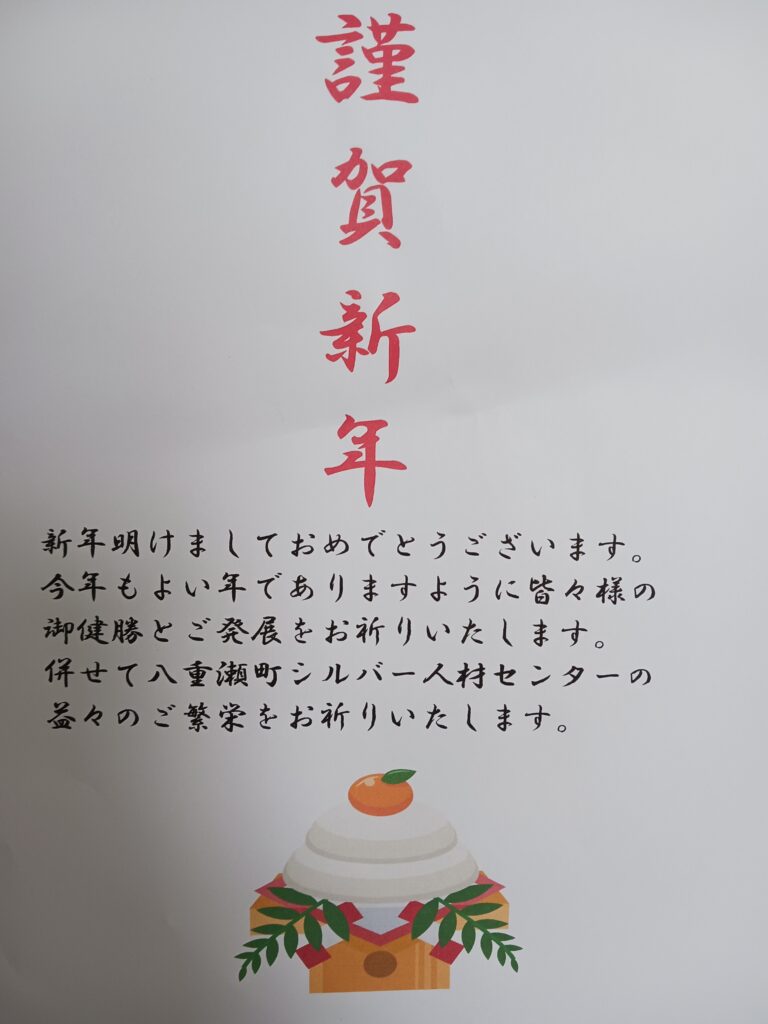 謹賀新年
新年明けましておめでとうございます。
今年もよい年でありますように皆々様の
御健勝とご発展をお祈りいたします。
併せて八重瀬町シルバー人材センターの
益々のご繁栄をお祈りいたします。